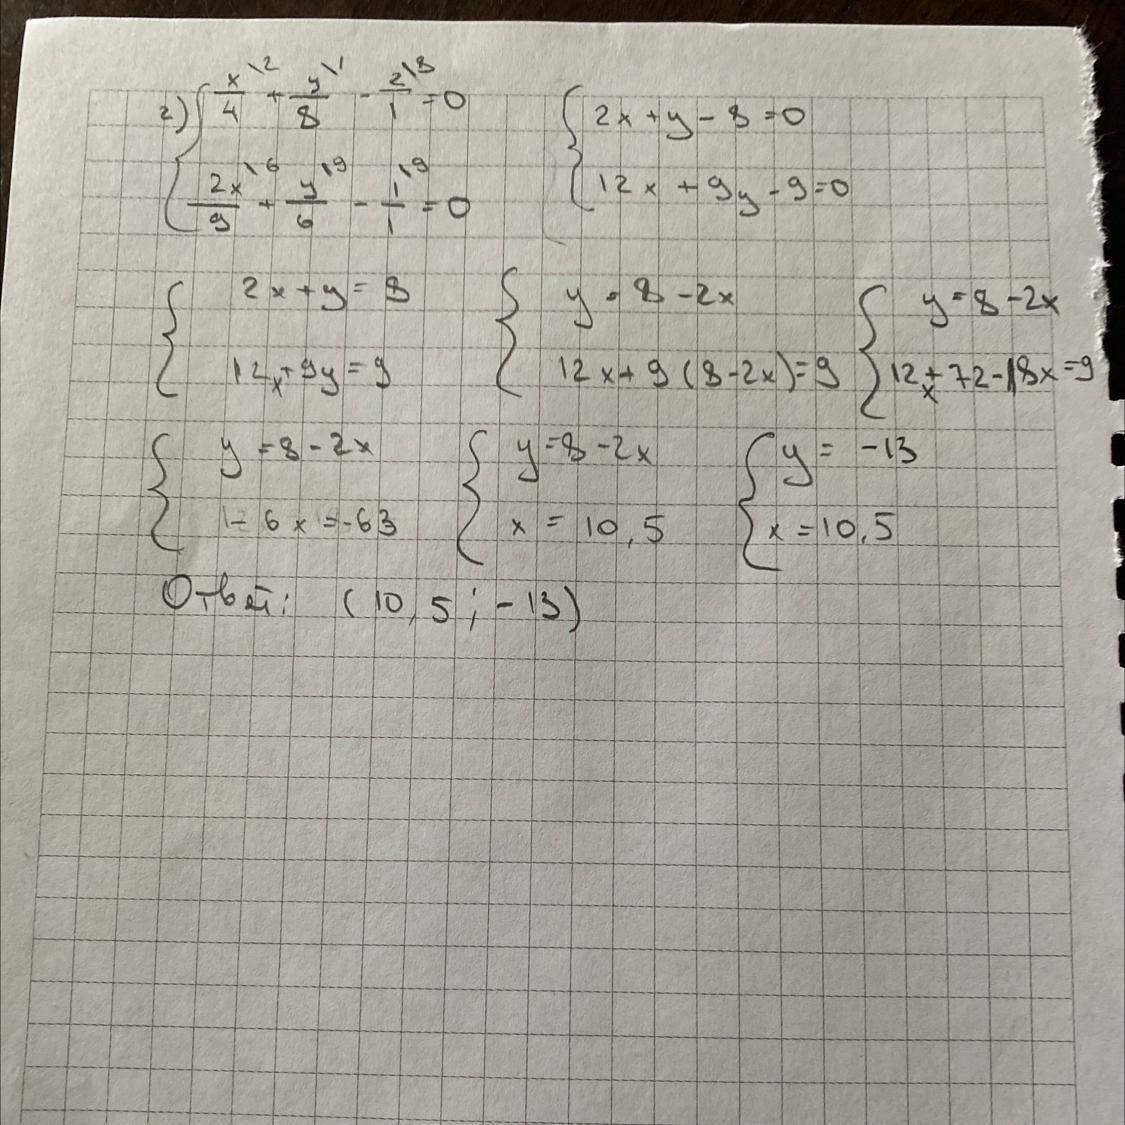 2) { x/4 \2 + y/8 \1 - 2/1 \8 = 0
2x/9 \6 + y/6 \9 - 1/1 \9 = 0
{ 2x + y - 8 = 0
12x + 9y - 9 = 0
{ 2x + y = 8
12x + 9y = 9
{ y = 8 - 2x
12x + 9 (8 - 2x) = 9
{ y = 8 - 2x
12x + 72 - 18x = 9
{ y = 8 - 2x
- 6x = -63
{ y = 8 - 2x
x = 10,5
{ y = -13
x = 10,5
Ответ: (10,5 ; -13)